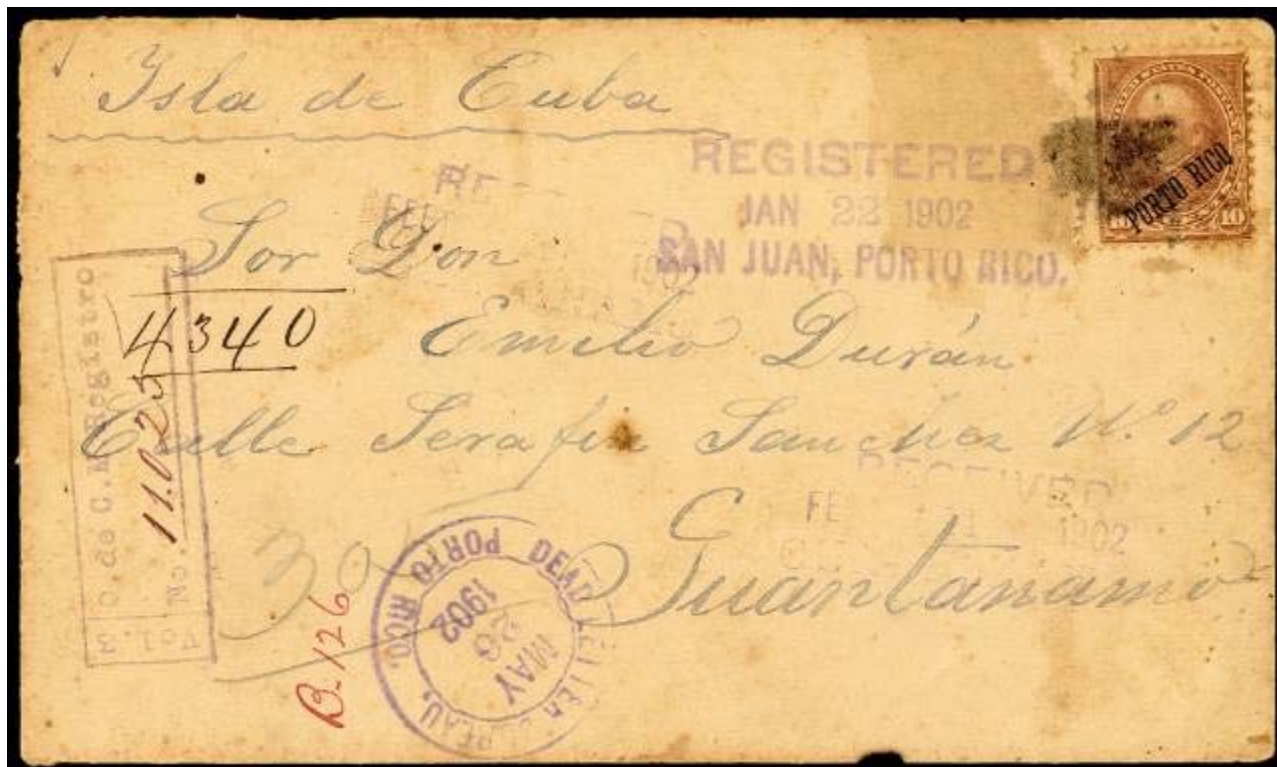 Isla de Cuba
PORTO RICO
10
REGISTERED
JAN 22 1902
SAN JUAN, PORTO RICO.
RE
FEB
Sor Don
4340
Emilio Durán
Calle Serafin Sanchez Nº 12
RECEIVED
FE 1 1902
Guantanamo
30
C. de C. M. Registro
No. 11.025
Vol. 3
B-126
DEAD LETTER BUREAU, PORTO RICO.
MAY
26
1902